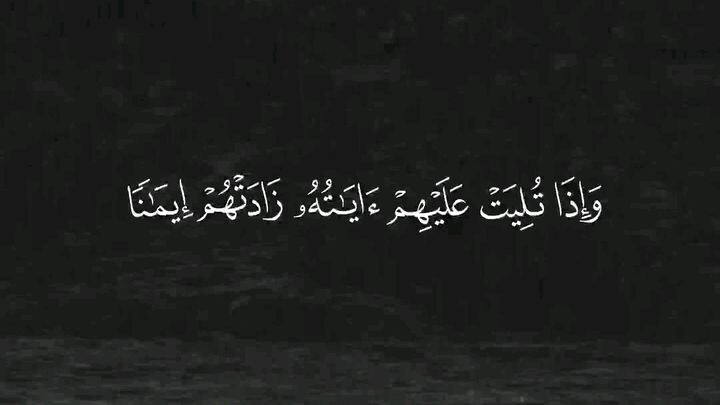 وَإِذَا تُلِيَتْ عَلَيْهِمْ ءَايَـٰتُهُۥ زَادَتْهُمْ إِيمَـٰنًا